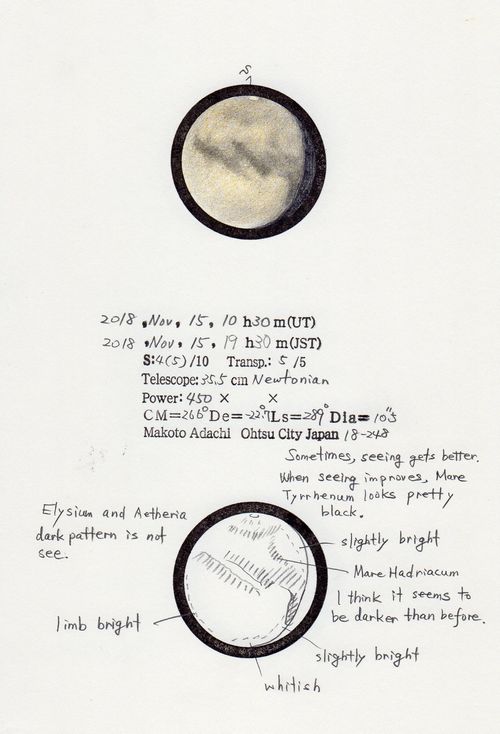 S
2018, Nov, 15, 10 h30 m(UT)
2018, Nov, 15, 19 h30 m(JST)
S:4(5)/10 Transp.: 5 /5
Telescope: 35.5 cm Newtonian
Power: 450 × ×
CM=266° De=-22.7° Ls=289° Dia=10"5
Makoto Adachi Ohtsu City Japan 18-248
Sometimes, seeing gets better.
When seeing improves, Mare
Tyrrhenum looks pretty
black.
Elysium and Aetheria
dark pattern is not
see.
slightly bright
Mare Hadriacum
I think it seems to
be darker than before.
limb bright
slightly bright
whitish